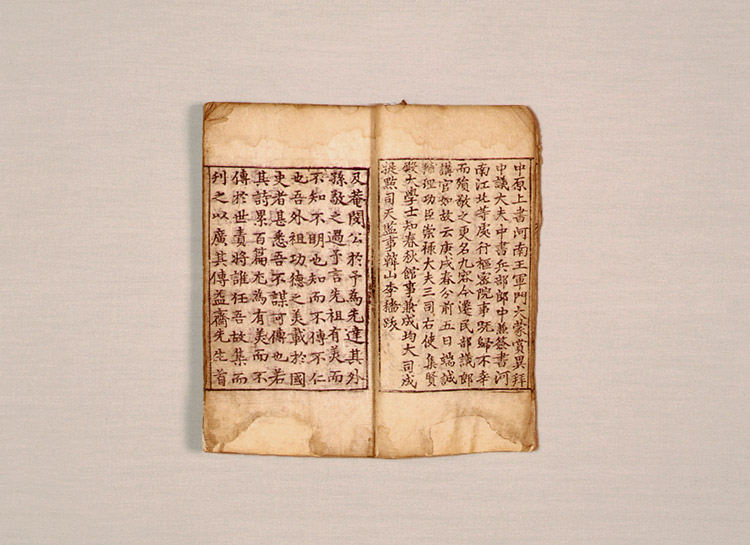 中原上書河南王軍門大蒙賞異拜
中議大夫中書兵部郎中兼簽書河
南江北等處行樞密院事旣歸不幸
而殞敬之更名九容今遷民部議郎
講官如故云庚戌春分前五日端誠
理功臣崇祿大夫三司右使集賢
殿大學士知春秋館事兼成均大司成
提點司天監事韓山李穡跋
及菴閔公於予為先達其外
孫敬之過予言先祖有美而
不知不明也知而不傳不仁
也吾外祖功德之美載於國
史者甚悉吾不謀可傳也若
其詩累百篇尤為有美而不
傳於世責將誰任吾故集而
刊之以廣其傳益齋先生首